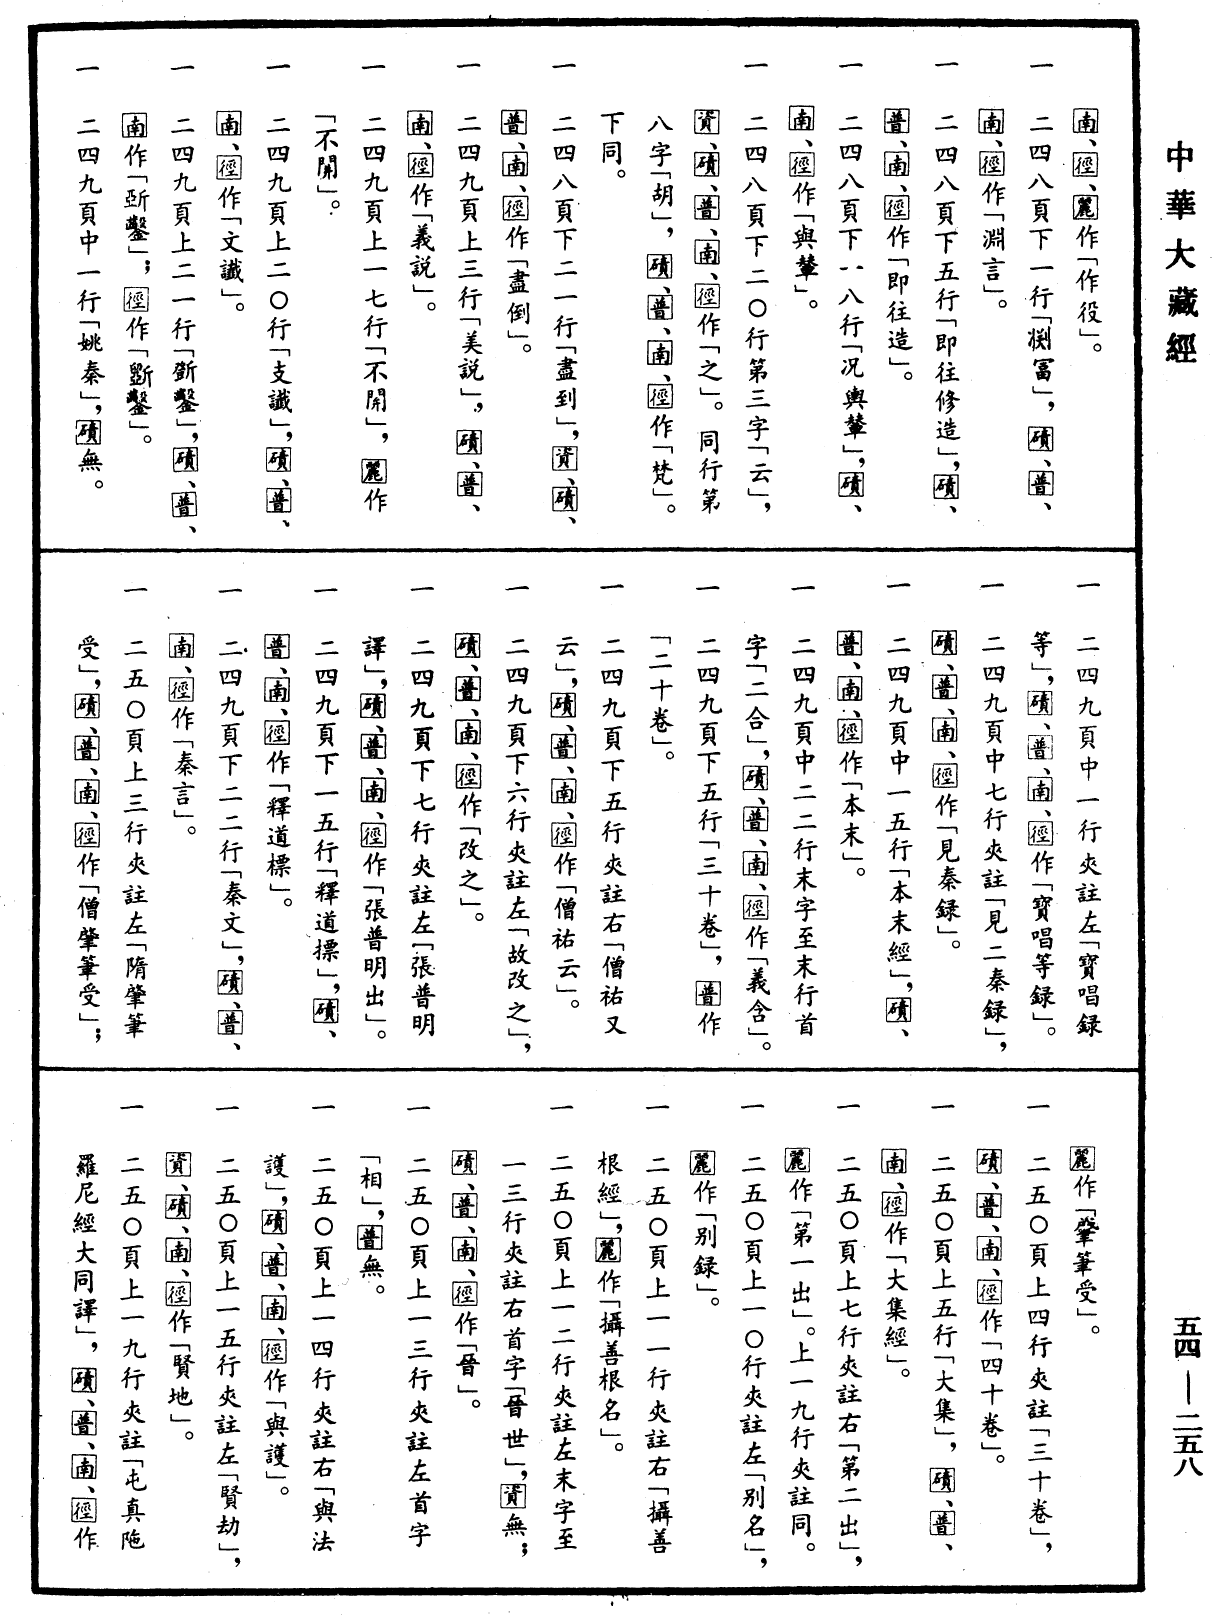 中華大藏經
南、徑、麗作「作役」。
一 二四八頁下一行「㴊富」,磧、普、
南、徑作「淵言」。
一 二四八頁下五行「即往修造」,磧、
普、南、徑作「即往造」。
一 二四八頁下一八行「况輿輦」,磧、
南、徑作「與輦」。
一 二四八頁下二〇行第三字「云」,
資、磧、普、南、徑作「之」。同行第
八字「胡」,磧、普、南、徑作「梵」。
下同。
一 二四八頁下二一行「盡到」,資、磧、
普、南、徑作「盡倒」。
一 二四九頁上三行「美説」,磧、普、
南、徑作「義説」。
一 二四九頁上一七行「不開」,麗作
「不閞」。
一 二四九頁上二〇行「支讖」,磧、普、
南、徑作「文讖」。
一 二四九頁上二一行「斵鑿」,磧、普、
南作「斲鑿」;徑作「斲鑿」。
一 二四九頁中一行「姚秦」,磧無。
一 二四九頁中一行夾註左「寶唱録
等」,磧、普、南、徑作「寶唱等録」。
一 二四九頁中七行夾註「見二秦録」,
磧、普、南、徑作「見秦録」。
一 二四九頁中一五行「本末經」,磧、
普、南、徑作「本末」。
一 二四九頁中二二行末字至末行首
字「二合」,磧、普、南、徑作「義含」。
一 二四九頁下五行「三十卷」,普作
「二十卷」。
一 二四九頁下五行夾註右「僧祐又
云」,磧、普、南、徑作「僧祐云」。
一 二四九頁下六行夾註左「故改之」,
磧、普、南、徑作「改之」。
一 二四九頁下七行夾註左「張普明
譯」,磧、普、南、徑作「張普明出」。
一 二四九頁下一五行「釋道摽」,磧、
普、南、徑作「釋道標」。
一 二四九頁下二二行「秦文」,磧、普、
南、徑作「秦言」。
一 二五〇頁上三行夾註左「隋肇筆
受」,磧、普、南、徑作「僧肇筆受」;
麗作「肇筆受」。
一 二五〇頁上四行夾註「三十卷」,
磧、普、南、徑作「四十卷」。
一 二五〇頁上五行「大集」,磧、普、
南、徑作「大集經」。
一 二五〇頁上七行夾註右「第二出」,
麗作「第一出」。上一九行夾註同。
一 二五〇頁上一〇行夾註左「别名」,
麗作「别録」。
一 二五〇頁上一一行夾註右「攝善
根經」,麗作「攝善根名」。
一 二五〇頁上一二行夾註左末字至
一三行夾註右首字「晉世」,資無;
磧、普、南、徑作「晉」。
一 二五〇頁上一三行夾註左首字
「相」,普無。
一 二五〇頁上一四行夾註右「與法
護」,磧、普、南、徑作「與護」。
一 二五〇頁上一五行夾註左「賢劫」,
資、磧、南、徑作「賢地」。
一 二五〇頁上一九行夾註「屯真陁
羅尼經大同譯」,磧、普、南、徑作
五四—二五八